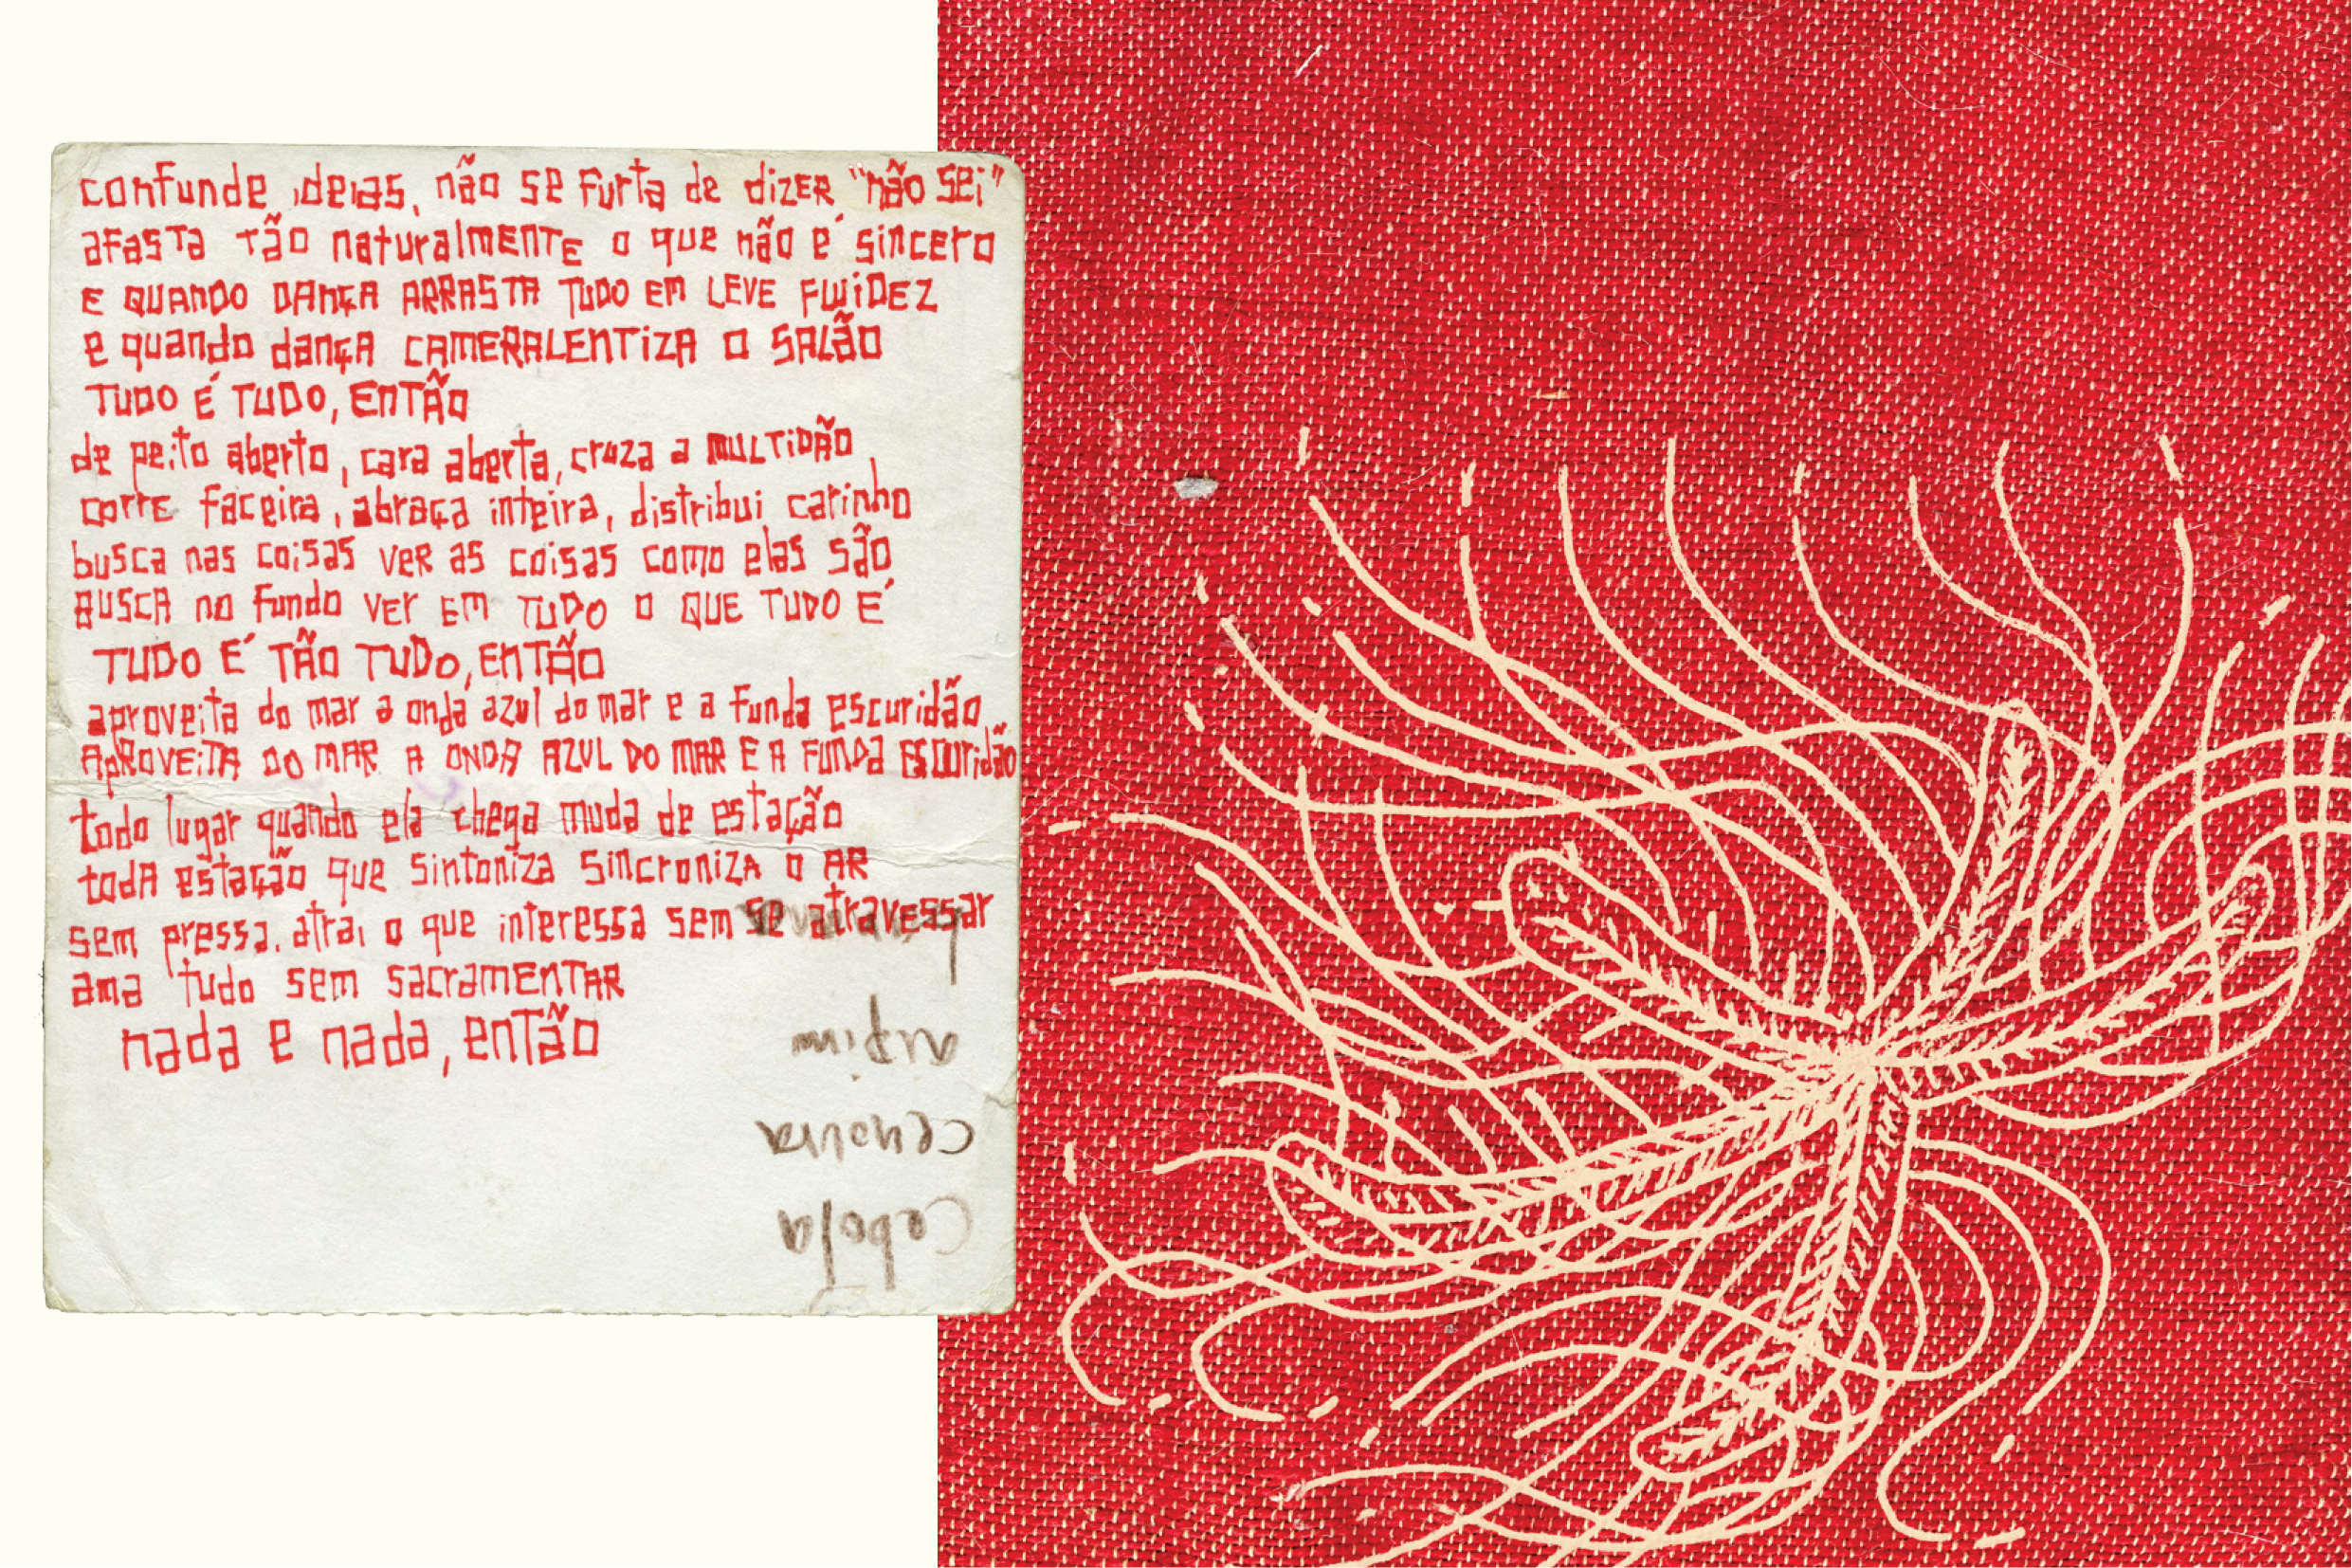 confunde ideias, não se furta de dizer "não sei"
afasta tão naturalmENTE o que não é sincero
E QUANDO DANÇA ARRASTA TUDO EM LEVE FLUiDEZ
e quando dançA CAMERALENTiZA O SALÃO
TUDO É TUDO, ENTÃO
de peito aberto, cara aberta, cruza a MULTIDÃO,
corre faceira, abraça inteira, distribui carinho
busca nas coisas ver as coisas como elas são
BUSCA no fundo ver EM TUDO O QUE TUDO É
TUDO É TÃO TUDO, ENTÃO
aproveita do mar a onda azul do mar e a funda escuridão
APROVEiTA DO MAR A ONDA AZUL DO MAR E A FUNDA ESCUridão
todo lugar quando ela chega muda de estação
todA estação que sintoniza sincroniza o AR
sem pressa, atrai o que interessa sem se atravessar
ama tudo sem sacramENTAR
nada e nada, entÃo
aipim
cenoura
cebola